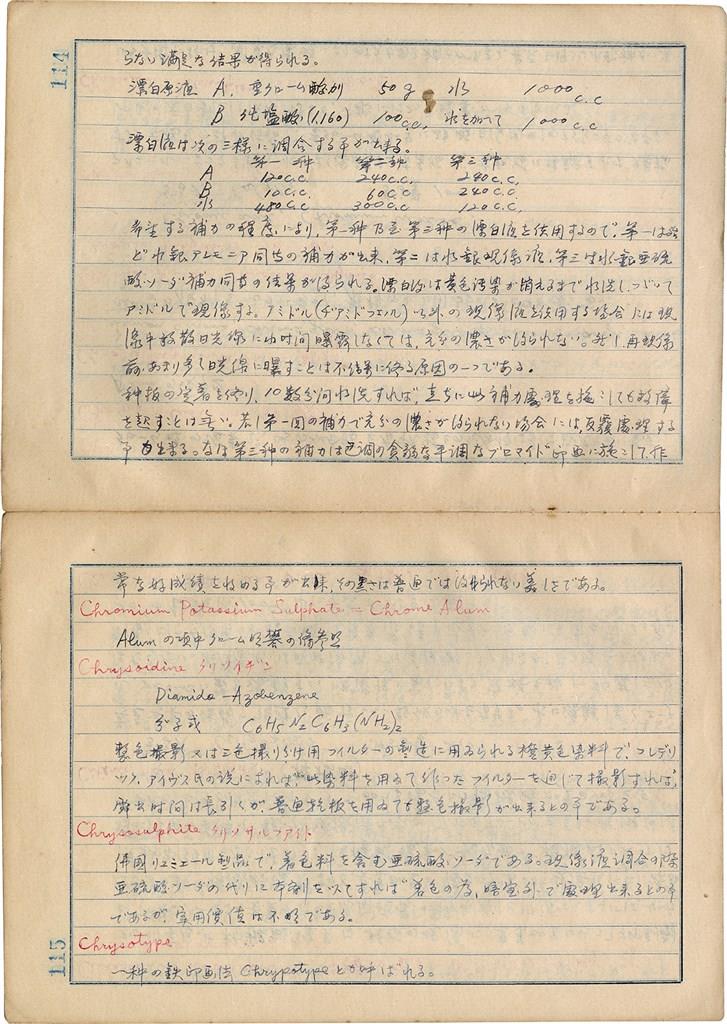 114
らない満足な結果が得られる。
漂白原液 A. 重クローム酸加里 50g 水 1000c.c
B 純塩酸(1.160) 100c.c. 水を加へて 1000c.c
漂白液は次の三様に調合する事が出来る。
第一種 第二種 第三種
A 120c.c. 240c.c. 240c.c.
B 10c.c. 60c.c 240c.c.
水 480c.c 300c.c. 120c.c.
希望する補力の程度により、第一種乃至第三種の漂白液を使用するので、第一は殆
ど水銀アンモニア同等の補力が出来、第二は水銀現像液、第三は水銀亜硫
酸ソーダ補力同等の結果が得られる。漂白後は黄色汚染が消えるまで水洗し、つづいて
アミドルで現像する。アミドル(ヂアミドフェノール)以外の現像液を使用する場合には現
像半散光線に小時間曝露しなくては、充分の濃さが得られない。然し再現像
前、あまり多く日光線に曝すことは不結果に終る原因の一つである。
種板の定着を終り、10数分間水洗すれば、直ちに此補力處理を施こしても故障
を起すことは無い。若し第一回の補力で充分の濃さが得られない場合には、反覆處理する
事も出来る。なほ第三種の補力は色調の貧弱な平調なブロマイド印画に施こして、非
常な好成績を収める事が出来、その黒さは普通では得られない美しさである。
Chromium Potassium Sulphate = Chrome Alum
Alumの項中クローム明礬の條参照
Chrysoidine クリソイヂン
Diamido-Azobenzene
分子式 C6H5N2C6H3(NH2)2
整色撮影又は三色撮り分け用フィルターの製造に用ゐられる橙黄色染料で、フレデリ
ック、アイヴス氏の説によれば、此染料を用ゐて作ったフィルターを通じて撮影すれば、
露出時間は長引くが、普通乾板を用ゐても整色撮影が出来るとの事である。
Chrysosulphite クリソサルファイト
佛國リュミエール製品で、着色料を含む亜硫酸ソーダである。現像液調合の際
亜硫酸ソーダの代りに本剤を以てすれば着色の為、暗室外で處理出来るとの事
であるが、実用價値は不明である。
Chrysotype
一種の鉄印画法 Chrypotypeとも呼ばれる。
115